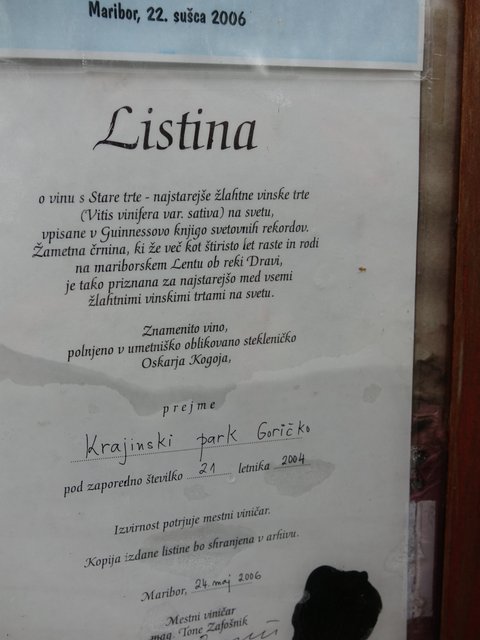 Maribor, 22. sušca 2006
Listina
o vinu s Stare trte - najstarejše žlahtne vinske trte
(Vitis vinifera var. sativa) na svetu,
vpisane v Guinnessovo knjigo svetovnih rekordov.
Žametna črnina, ki že več kot štiristo let raste in rodi
na mariborskem Lentu ob reki Dravi,
je tako priznana za najstarejšo med vsemi
žlahtnimi vinskimi trtami na svetu.
Znamenito vino,
polnjeno v umetniško oblikovano stekleničko
Oskarja Kogoja,
prejme
Krajinski park Goričko
pod zaporedno številko 21 letnika 2004
Izvirnost potrjuje mestni viničar.
Kopija izdane listine bo shranjena v arhivu.
Maribor, 24. maj 2006
Mestni viničar
mag. Tone Zafošnik